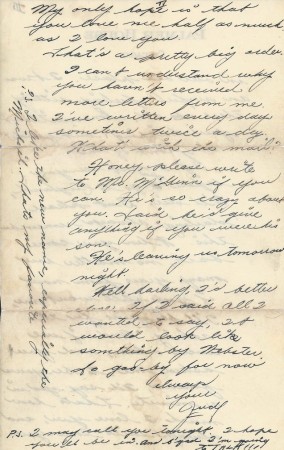 My only hope is that
you love me half as much
as I love you.
That's a pretty big order.
I can't understand why
you haven't received
more letters from me.
I've written every day
sometimes twice a day.
What's with the mail?
Honey, please write
to Mr. McGinn if you
can. He's so crazy about
you. Said he'd give
anything if you were his
son.
He's leaving us tomorrow
night.
Well darling, I'd better
close. If I said all I
wanted to say, it
would look like
something by Webster.
So goo-by for now
always
your
Judy
P.S. I may call you tonight. I hope
you'll be in and
P.S. I love the new names, especially the
my favorite